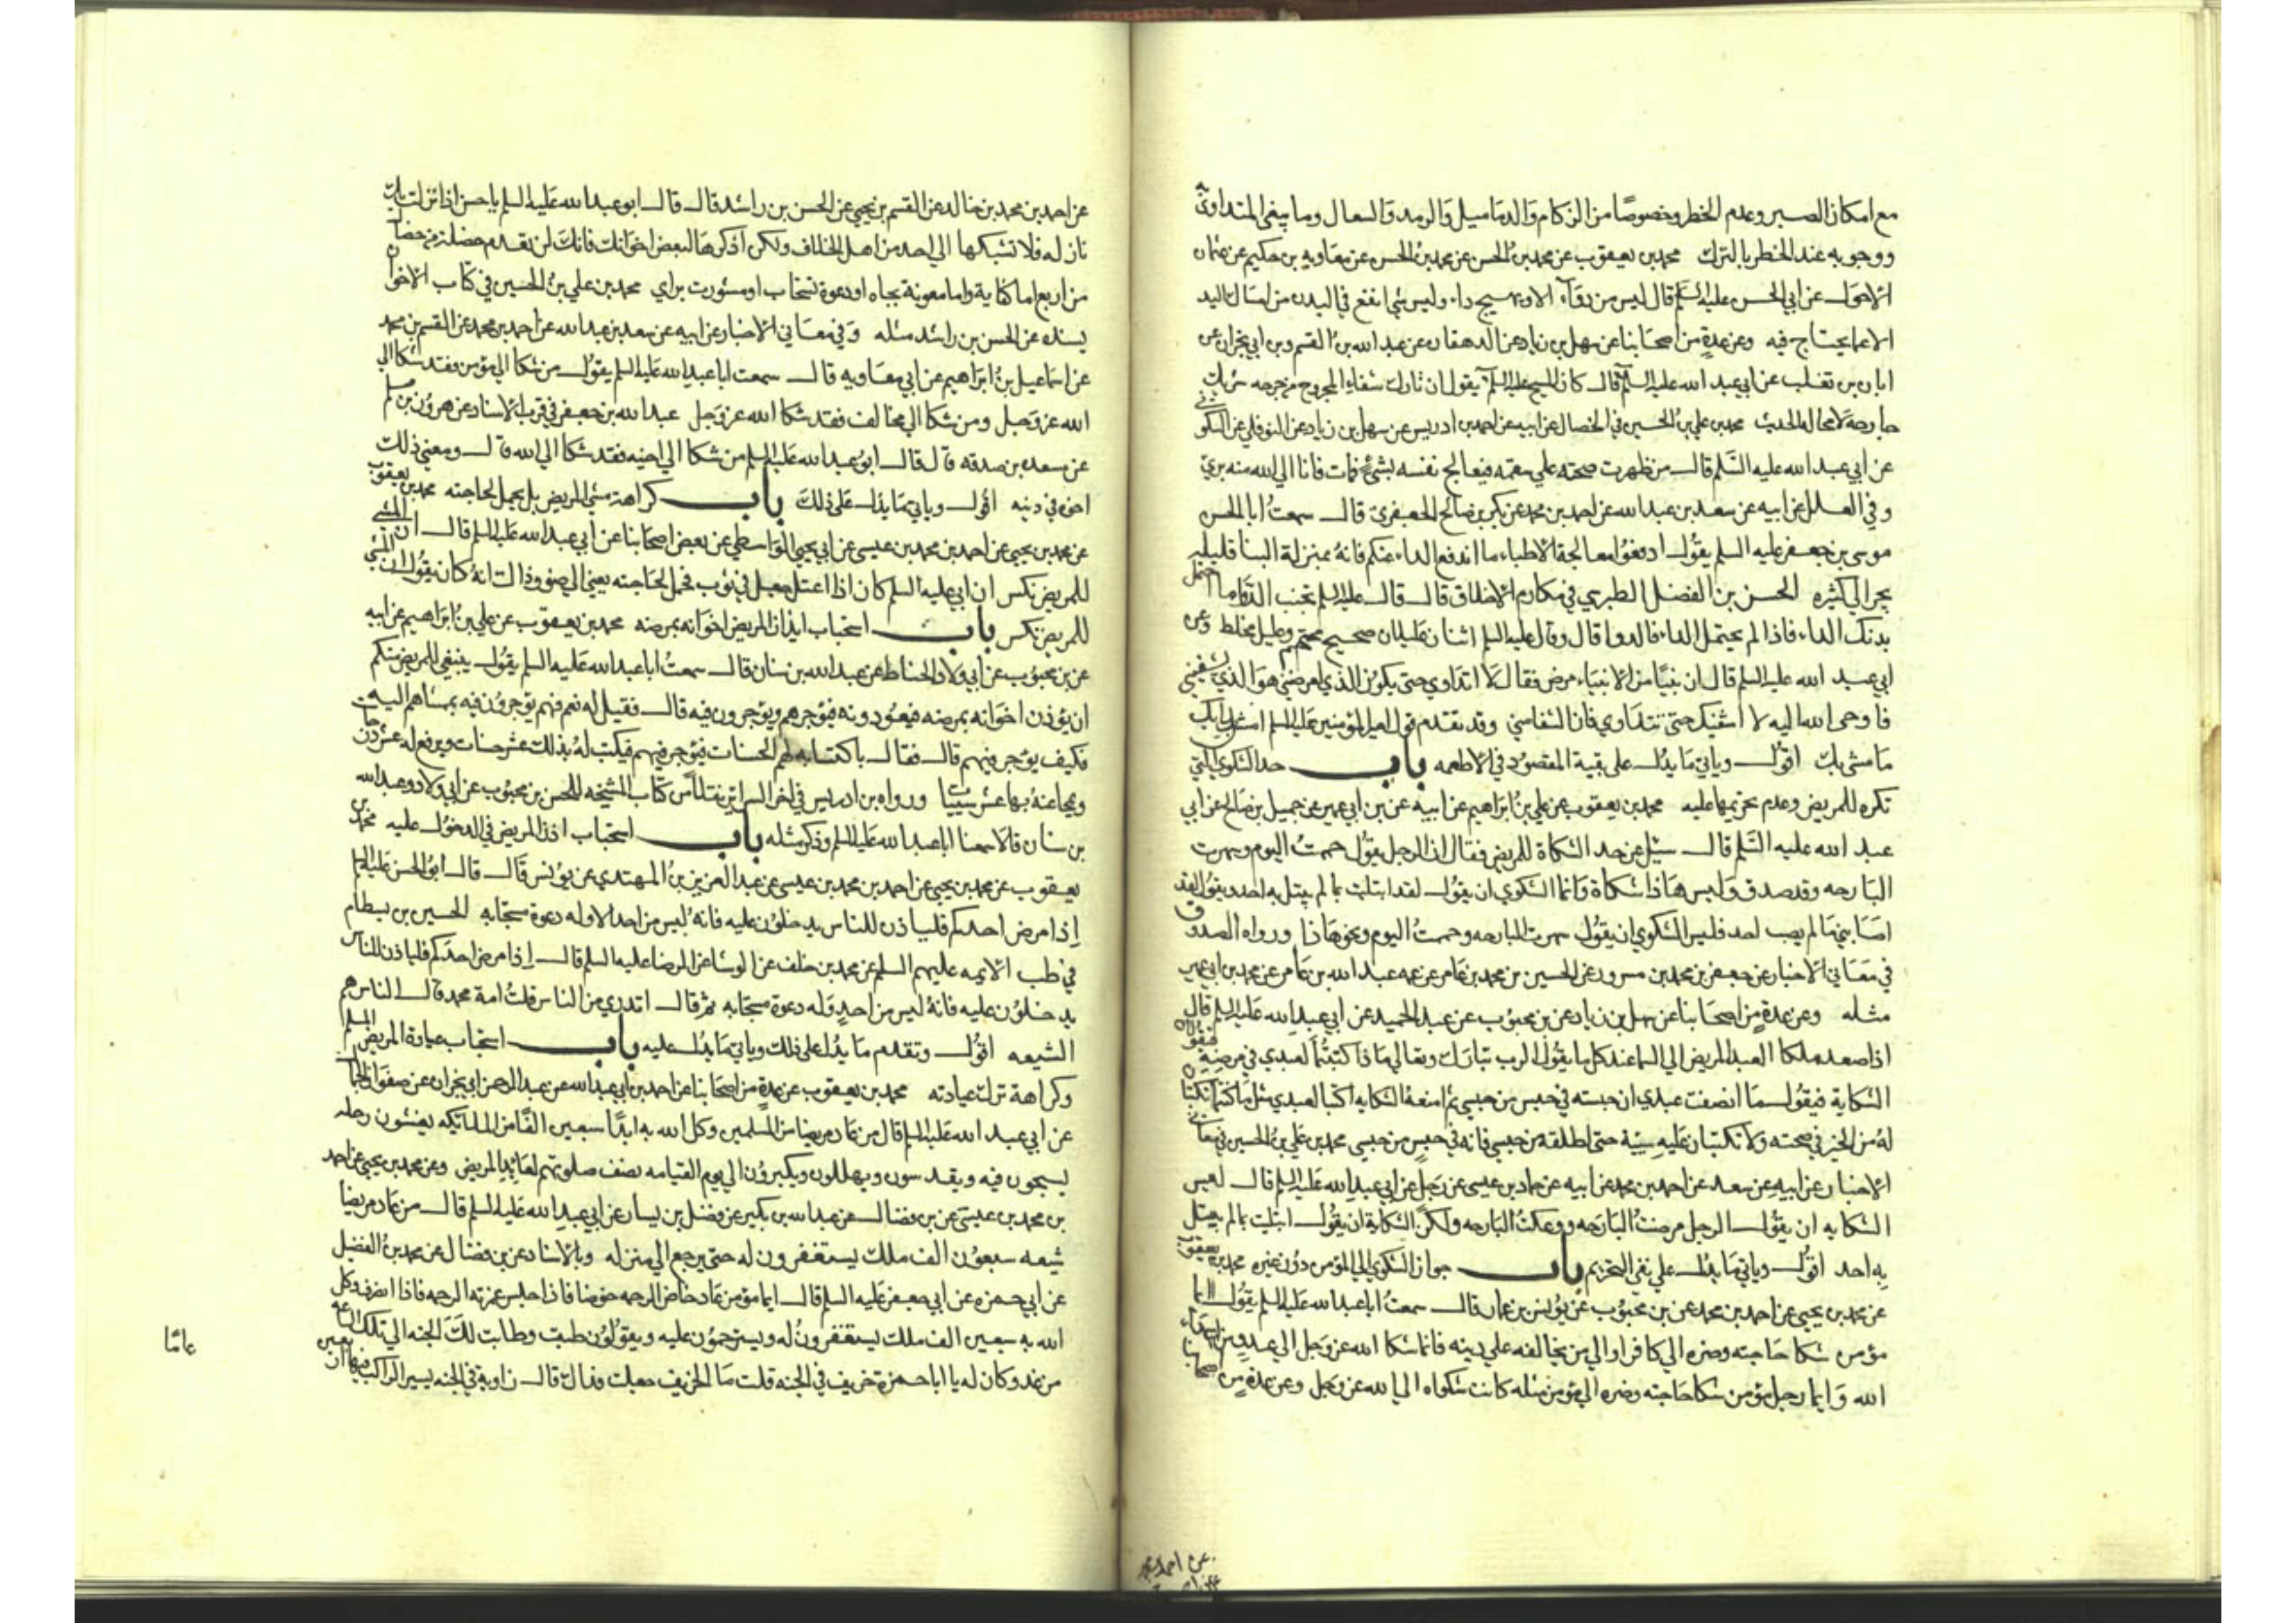 مع امكان الصبر وعدم الخطر وخصوصًا من الزكام والدماميل والرمد والسعال وما ينبغي التداوي به
ووجوبه عند الخطر بالترك محمد بن يعقوب عن محمد بن الحسن عن محمد بن الحسن عن معاويه بن حكيم عن عثمان
الاحول عن ابي الحسن عليه السلم قال ليس من دوآء الا وهو يهيج داء وليس شي انفع في البدن من امساك اليد
الا عما يحتاج فيه وعن عدة من اصحابنا عن سهل بن زياد عن الدهقان عن عبد الله بن القسم وبن ابي نجران عن
ابان بن تغلب عن ابي عبد الله عليه السلم قال كان المسيح عليه السلم يقول ان تارك شفاء المجروح من جرحه شريك
جارحه لا محاله الحديث محمد بن علي بن الحسين في الخصال عن ابيه عن احمد بن ادريس عن سهل بن زياد عن النوفلي عن السكوني
عن ابي عبد الله عليه السلم قال من ظهرت صحته علي سقمه فيعالج نفسه بشئ فمات فانا الي الله منه بري
وفي العلل عن ابيه عن سعد بن عبد الله عن احمد بن محمد عن بكر بن صالح الجعفري قال سمعتُ ابا الحسن
موسى بن جعفر عليه السلم يقول ادفعوا معالجة الاطباء ما اندفع الداء عنكم فانهُ بمنزلة البنا قليله
يجر الي كثيره الحسن بن الفضل الطبرسي في مكارم الاخلاق قال قال عليه السلم تجنب الدواء ما احتمل
بدنك الداء فاذا لم يحتمل الداء فالدوا قال وقال عليه السلم اثنان عليلان صحيح محتم وعليل مخلط وعن
ابي عبد الله عليه السلم قال ان نبيًّا من الانبياء مرض فقال لا اتداوي حتى يكون الذي امرضني هو الذي يشفيني
فاوحى الله اليه لا اشفيك حتى تتداوي فان الشفا مني وقد تقدم قول امير المؤمنين عليه السلم امش بدايك
ما مشي بك اقول وياتي ما يدل على بقية المقصود في الاطعمه باب حد الشكوي التي
تكره للمريض وعدم تحريمها عليه محمد بن يعقوب عن علي بن ابراهيم عن ابيه عن بن ابي عمير عن جميل بن صالح عن ابي
عبد الله عليه السلم قال سئل عن حد الشكاة للمريض فقال ان الرجل يقول حممتُ اليوم وسهرت
البارحه وقد صدق وليس هذا شكاة وانما الشكوي ان يقول لقد ابتليت بما لم يبتل به احد ويقول لقد
اصابني ما لم يصب احد فليس الشكوي ان يقول سهرت البارحه وحممتُ اليوم ونحو هذا ورواه الصدوق
في معاني الاخبار عن جعفر بن محمد بن مسرور عن الحسين بن محمد بن عامر عن عمه عبد الله بن عامر عن محمد بن ابي عمير
مثله وعن عدة من اصحابنا عن سهل بن زياد عن بن محبوب عن عبد الحميد عن ابي عبد الله عليه السلم قال
اذا صعد ملكا العبد المريض الي السما عند كل مسا يقول الرب تبارك وتعالي ماذا كتبتما لعبدي في مرضه فيقولان
الشكاية فيقول ما انصفت عبدي ان حبسته في حبس من حبسي ثم امنعهُ الشكايه اكتبا لعبدي مثل ما كنتما تكتبان
لهُ من الخير في صحته ولا تكتبان عليه سيئة حتى اطلقه من حبسي فانه في حبس من حبسي محمد بن علي بن الحسين في معاني
الاخبار عن ابيه عن سعد عن احمد بن محمد عن ابيه عن حماد بن عيسى عن رجل عن ابي عبد الله عليه السلم قال ليس
الشكايه ان يقول الرجل مرضتُ البارحه ووعكتُ البارحه ولكن الشكاية ان يقول ابتليت بما لم يبتل
به احد اقول وياتي ما يدل علي نفي التحريم باب جواز الشكوي الي المؤمن دون غيره محمد بن يعقوب
عن محمد بن يحيى عن احمد بن محمد عن بن محبوب عن يونس بن عمار قال سمعتُ ابا عبد الله عليه السلم يقول ايما
مؤمن شكا حاجته وضره الي كافر او الي من يخالفه علي دينه فانما شكا الله عز وجل الي عدو من اعداء
الله وايما رجل مؤمن شكا حاجته وضره الي مؤمن مثله كانت شكواه الي الله عز وجل وعن عدة من اصحابنا
عن احمد بن محمد
عن احمد بن محمد بن خالد عن القسم بن يحيى عن الحسن بن راشد قال قال ابو عبد الله عليه السلم يا حسن اذا نزلت بك
نازله فلا تشكها الي احد من اهل الخلاف ولكن اذكرها لبعض اخوانك فانك لن تقدم خصلة من خصال
من اربع اما كفاية واما معونة بجاه او دعوة تستجاب او مشورت براي محمد بن علي بن الحسين في كتاب الاخوان
بسنده عن الحسن بن راشد مثله وفي معاني الاخبار عن ابيه عن سعد بن عبد الله عن احمد بن محمد عن القسم بن محمد
عن اسماعيل بن ابراهيم عن ابي معاويه قال سمعت ابا عبد الله عليه السلم يقول من شكا الي مؤمن فقد شكا الي
الله عز وجل ومن شكا الي مخالف فقد شكا الله عز وجل عبد الله بن جعفر في قرب الاسناد عن هرون بن مسلم
عن مسعده بن صدقه قال قال ابو عبد الله عليه السلم من شكا الي اخيه فقد شكا الي الله قال ومعنى ذلك
اخوه في دينه اقول وياتي ما يدل على ذلك باب كراهة مشي المريض بل يحمل لحاجته محمد بن يعقوب
عن محمد بن يحيى عن احمد بن محمد بن عيسى عن ابي يحيى الواسطي عن بعض اصحابنا عن ابي عبد الله عليه السلم قال ان المشي
للمريض نكس ان ابي عليه السلم كان اذا اعتل جعل في ثوب فحمل لحاجته يعني الوضوء وذاك انهُ كان يقول ان المشي
للمريض نكس باب استحباب ايذان المريض اخوانه بمرضه محمد بن يعقوب عن علي بن ابراهيم عن ابيه
عن بن محبوب عن ابي ولاد الحناط عن عبد الله بن سنان قال سمعتُ ابا عبد الله عليه السلم يقول ينبغي للمريض منكم
ان يؤذن اخوانه بمرضه فيعودونه فيؤجر فيهم ويؤجرون فيه قال فقيل له نعم فهم يؤجرون فيه بممشاهم اليه
فكيف يؤجر فيهم قال فقال باكتسابه لهم الحسنات فيؤجر فيهم فيكتب لهُ بذلك عشر حسنات ويرفع له عشر درجات
ويمحا عنهُ بها عشر سيئات ورواه بن ادريس في اخر السرائر نقلاً من كتاب المشيخه للحسن بن محبوب عن ابي ولاد وعبد الله
بن سنان قالا سمعنا ابا عبد الله عليه السلم وذكر مثله باب استحباب اذن المريض في الدخول عليه محمد بن
يعقوب عن محمد بن يحيى عن احمد بن محمد بن عيسى عن عبد العزيز بن المهتدي عن يونس قال قال ابو الحسن عليه السلم
إذا مرض احدكم فلياذن للناس يدخلون عليه فانهُ ليس من احد الا وله دعوة مستجابه الحسين بن بسطام
في طب الائمه عليهم السلم عن محمد بن خلف عن الوشا عن الرضا عليه السلم قال إذا مرض احدكم فلياذن للناس
يدخلون عليه فانهُ ليس من احد وله دعوة مستجابه ثم قال اتدري من الناس قلتُ امة محمد قال الناس هم
الشيعه اقول وتقدم ما يدل على ذلك وياتي ما يدل عليه باب استحباب عيادة المريض المسلم
وكراهة ترك عيادته محمد بن يعقوب عن عدة من اصحابنا عن احمد بن ابي عبد الله عن عبد الرحمن بن ابي نجران عن صفوان الجمال
عن ابي عبد الله عليه السلم قال من عاد مريضا من المسلمين وكل الله به ابدًا سبعين الفًا من الملائكه يغشون رحله
يسبحون فيه ويقدسون ويهللون ويكبرون الي يوم القيامه نصف صلوتهم لعائد المريض وعن محمد بن يحيى عن احمد
بن محمد بن عيسى عن بن فضال عن عبد الله بن بكير عن فضيل بن يسار عن ابي عبد الله عليه السلم قال من عاد مريضا
شيعه سبعون الف ملك يستغفرون له حتى يرجع الي منزله وبالاسناد عن بن فضال عن محمد بن الفضيل
عن ابي حمزه عن ابي جعفر عليه السلم قال ايما مؤمن عاد خاض الرحمه خوضا فاذا جلس غمرته الرحمه فاذا انصرف وكل
الله به سبعين الف ملك يستغفرون له ويسترحمون عليه ويقولون طبت وطابت لك الجنه الي تلك الساعه
من غد وكان له يا ابا حمزة خريف في الجنه قلت ما الخريف جعلت فداك قال زاوية في الجنه يسير الراكب فيها اربعين
عامًا